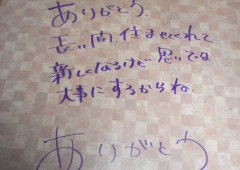 ありがとう
長い間住ませてくれて
新しくなるけど思い出は
大事にするからね
ありがとう